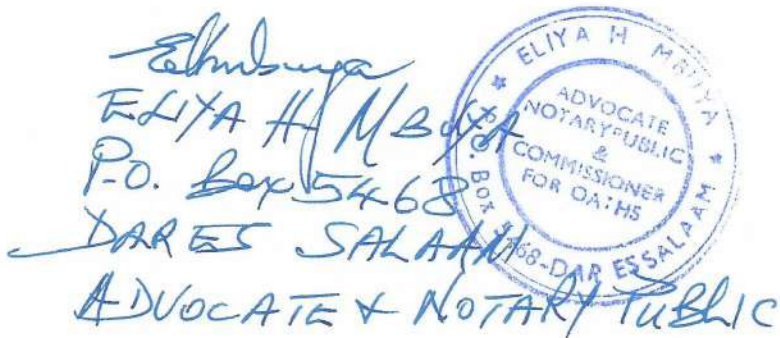 ELIYA H MBUYA
P.O. Box 5468
DAR ES SALAAM
ADVOCATE & NOTARY PUBLIC
ELIYA H MBUYA
ADVOCATE
NOTARY PUBLIC
&
COMMISSIONER
FOR OATHS
P.O. Box 5468-DAR ES SALAAM